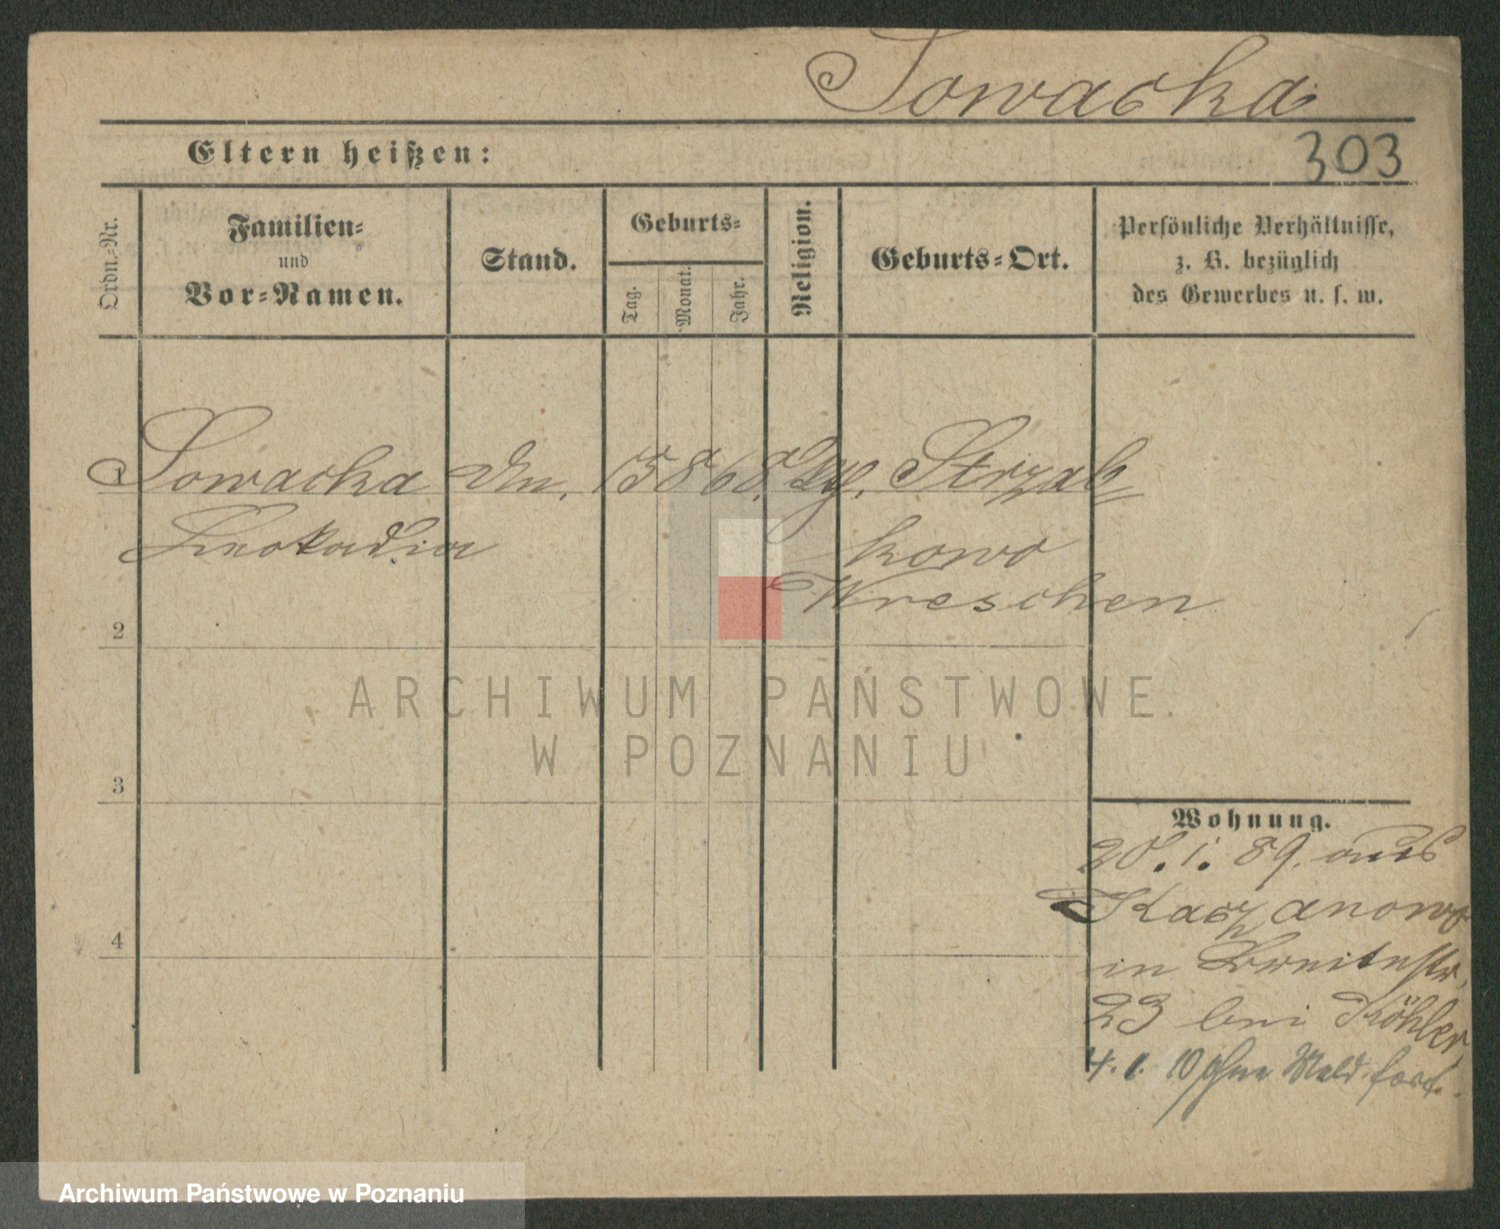 Sowacka
303
Eltern heißen:
Ordn.-Nr.
Familien-
und
Vor-Namen.
Stand.
Geburts-
Tag.
Monat.
Jahr.
Religion.
Geburts-Ort.
Persönliche Verhältnisse,
z. B. bezüglich
des Gewerbes u. s. w.
1 Sowacka 15 8 68. Strzal-
Leokadia kowo
Wreschen
2
3
4
ARCHIWUM PAŃSTWOWE
W POZNANIU
Wohnung.
20. 1. 89. aus
Kaczanowo
in Breitestr.
23 bei Köhler,
4. 1. 10 ohne Meld. fort.
Archiwum Państwowe w Poznaniu